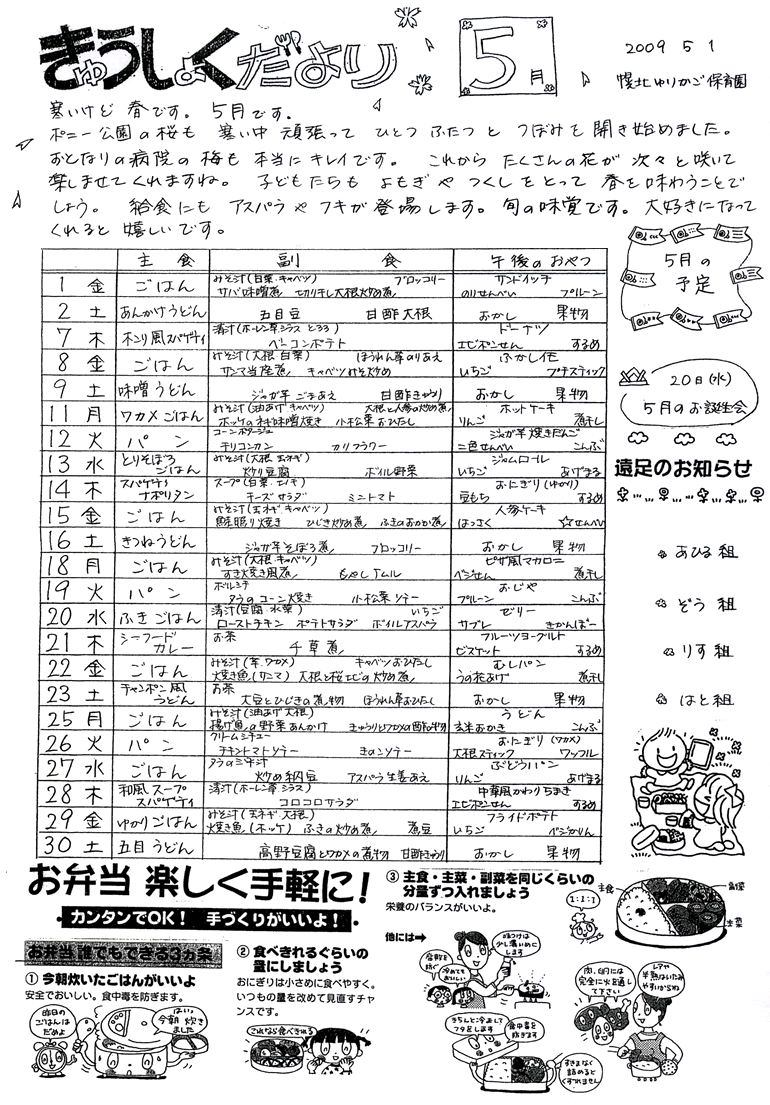 きゅうしょくだより
5月
2009 5 1
幌北ゆりかご保育園
寒いけど 春です。 5月です。
ポニー公園の桜も 寒い中 頑張って ひとつ ふたつ と つぼみを 開き始めました。
おとなりの病院の梅も 本当に キレイです。 これから たくさんの花が 次々と咲いて
楽しませてくれますね。 子どもたちも よもぎ や つくし を とって 春を味わうことで
しょう。 給食にも アスパラや フキが登場します。 旬の味覚です。大好きになって
くれると 嬉しいです。
主食 副食 午後のおやつ
1 金 ごはん みそ汁(白菜・キャベツ) ブロッコリー サンドイッチ
サバ味噌煮 切り干し大根炒め煮 のりせんべい プルーン
2 土 あんかけうどん 五目豆 甘酢大根 おかし 果物
7 木 清汁(ホーレン草 シラス とろろ) ドーナツ
ベーコンポテト エビポンせん するめ
8 金 ごはん みそ汁(大根・白菜) ほうれん草のりあえ
サンマ当座煮 キャベツみそ炒め いちご プチスティック
9 土 味噌うどん ジャガ芋 ごまあえ 甘酢きゅうり おかし 果物
11 月 ワカメごはん みそ汁(油あげ キャベツ) 大根と人参の炒め煮 ホットケーキ
ホッケのネギ味噌焼き 小松菜おひたし りんご 煮干し
12 火 パン コーンポタージュ ジャガ芋焼きだんご
チリコンカン カリフラワー 二色せんべい こんぶ
13 水 とりそぼろごはん みそ汁(大根 玉ネギ) ジャムロール
炒り豆腐 ボイル野菜 いちご あげまる
14 木 スパゲティナポリタン スープ(白菜・エノキ) おにぎり(ゆかり)
チーズサラダ ミニトマト 豆もち するめ
15 金 ごはん みそ汁(玉ネギ・キャベツ) 人参ケーキ
照り焼き ひじき炒め煮 ふきのおかか煮 はっさく ☆せんべい
16 土 きつねうどん ジャガ芋そぼろ煮 ブロッコリー おかし 果物
18 月 ごはん みそ汁(大根・キャベツ) ピザ風マカロニ
すき焼き風煮 もやしナムル ベジせん 煮干し
19 火 パン ボルシチ おじや
タラのコーン焼き 小松菜ソテー プルーン こんぶ
20 水 ふきごはん 清汁(豆腐・水菜) いちご ゼリー
ローストチキン ポテトサラダ ボイルアスパラ サブレ きかんぼー
21 木 シーフードカレー お茶 フルーツヨーグルト
千草煮 ビスケット するめ
22 金 ごはん みそ汁(芋・ワカメ) キャベツおひたし むしパン
焼き魚(サンマ) 大根と桜エビの炒め煮 うの花あげ 煮干し
23 土 チャンポン風うどん お茶
大豆とひじきの煮物 ほうれん草おひたし おかし 果物
25 月 ごはん みそ汁(油あげ 大根) うどん
揚げ魚の野菜あんかけ きゅうりとワカメの酢の物 玄米おかき こんぶ
26 火 パン クリームシチュー おにぎり(ワカメ)
チキントマトソテー きのこソテー 大根スティック ワッフル
27 水 ごはん タラの三平汁 ぶどうパン
炒め納豆 アスパラ生姜あえ りんご あげまる
28 木 和風スープスパゲティ 清汁(ホーレン草 シラス) 中華風かわりちまき
コロコロサラダ エビポンせん するめ
29 金 ゆかりごはん みそ汁(玉ネギ 大根) フライドポテト
焼き魚(ホッケ) ふきの炒め煮 煮豆 いちご ベジかりん
30 土 五目うどん 高野豆腐とワカメの煮物 甘酢きゅうり おかし 果物
5月の
予定
20日(水)
5月のお誕生会
遠足のお知らせ
あひる組
ぞう組
りす組
はと組
お弁当 楽しく手軽に!
カンタンでOK! 手づくりがいいよ!
お弁当 誰でもできる3ヵ条
① 今朝炊いたごはんがいいよ
安全でおいしい。食中毒を防ぎます。
昨日の
ごはんは
だめよ
はい
今朝 炊き
ました
② 食べきれるぐらいの
量にしましょう
おにぎりは小さめに食べやすく。
いつもの量を改めて見直すチャ
ンスです。
これなら食べきれる
③ 主食・主菜・副菜を同じくらいの
分量ずつ入れましょう
栄養のバランスがいいよ。
1:1:1
主食
副菜
主菜
他には➡
味つけは
少し濃いめに
します
腐敗を
防ぐ
冷めても
おいしい
きちんと冷まして
フタをします
食中毒を
防ぎます
肉、卵には
完全に火を通し
て下さい
レアや
半熟はいたみ
やすいからね
すきまなく
詰めると
くずれません